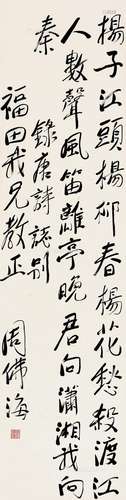 楊子江頭楊柳春楊花愁殺渡江
人數聲風笛離亭晚君向瀟湘我向
秦
錄唐詩話別
福田我兄教正
周佛海